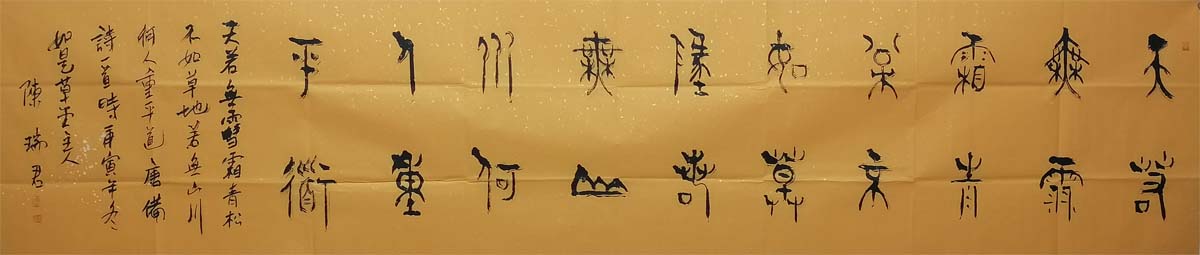 天若
無雪
霜青
松不
如草
地若
無山
川何
人重
平道
天若無雪霜青松
不如草地若無山川
何人重平道唐備
詩一首時庚寅年冬
如是草堂主人
陳瑞君